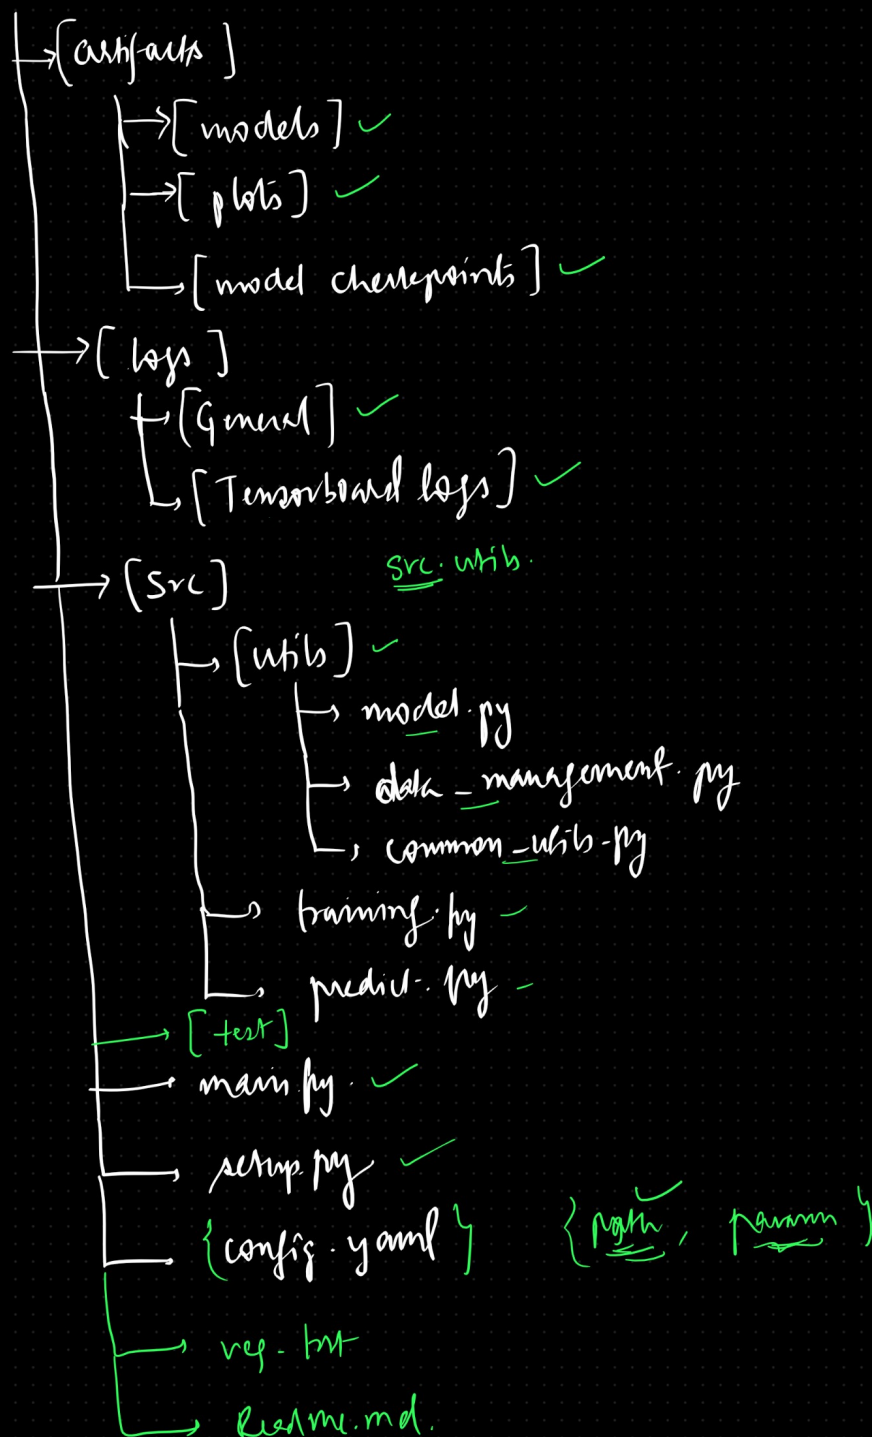 [artifacts]
[models]
[plots]
[model checkpoints]
[logs]
[General]
[Tensorboard logs]
[src]
src.utils.
[utils]
model.py
data_management.py
common_utils.py
training.py
predict.py
[test]
main.py
setup.py
{config.yaml}
{path, params}
req.txt
Readme.md.